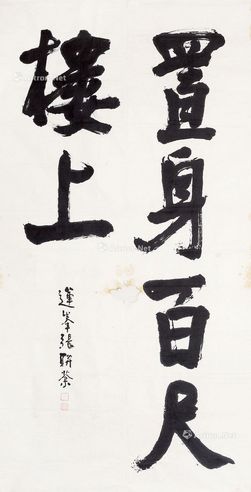 置身百尺
樓上
蓮峯張聯棻